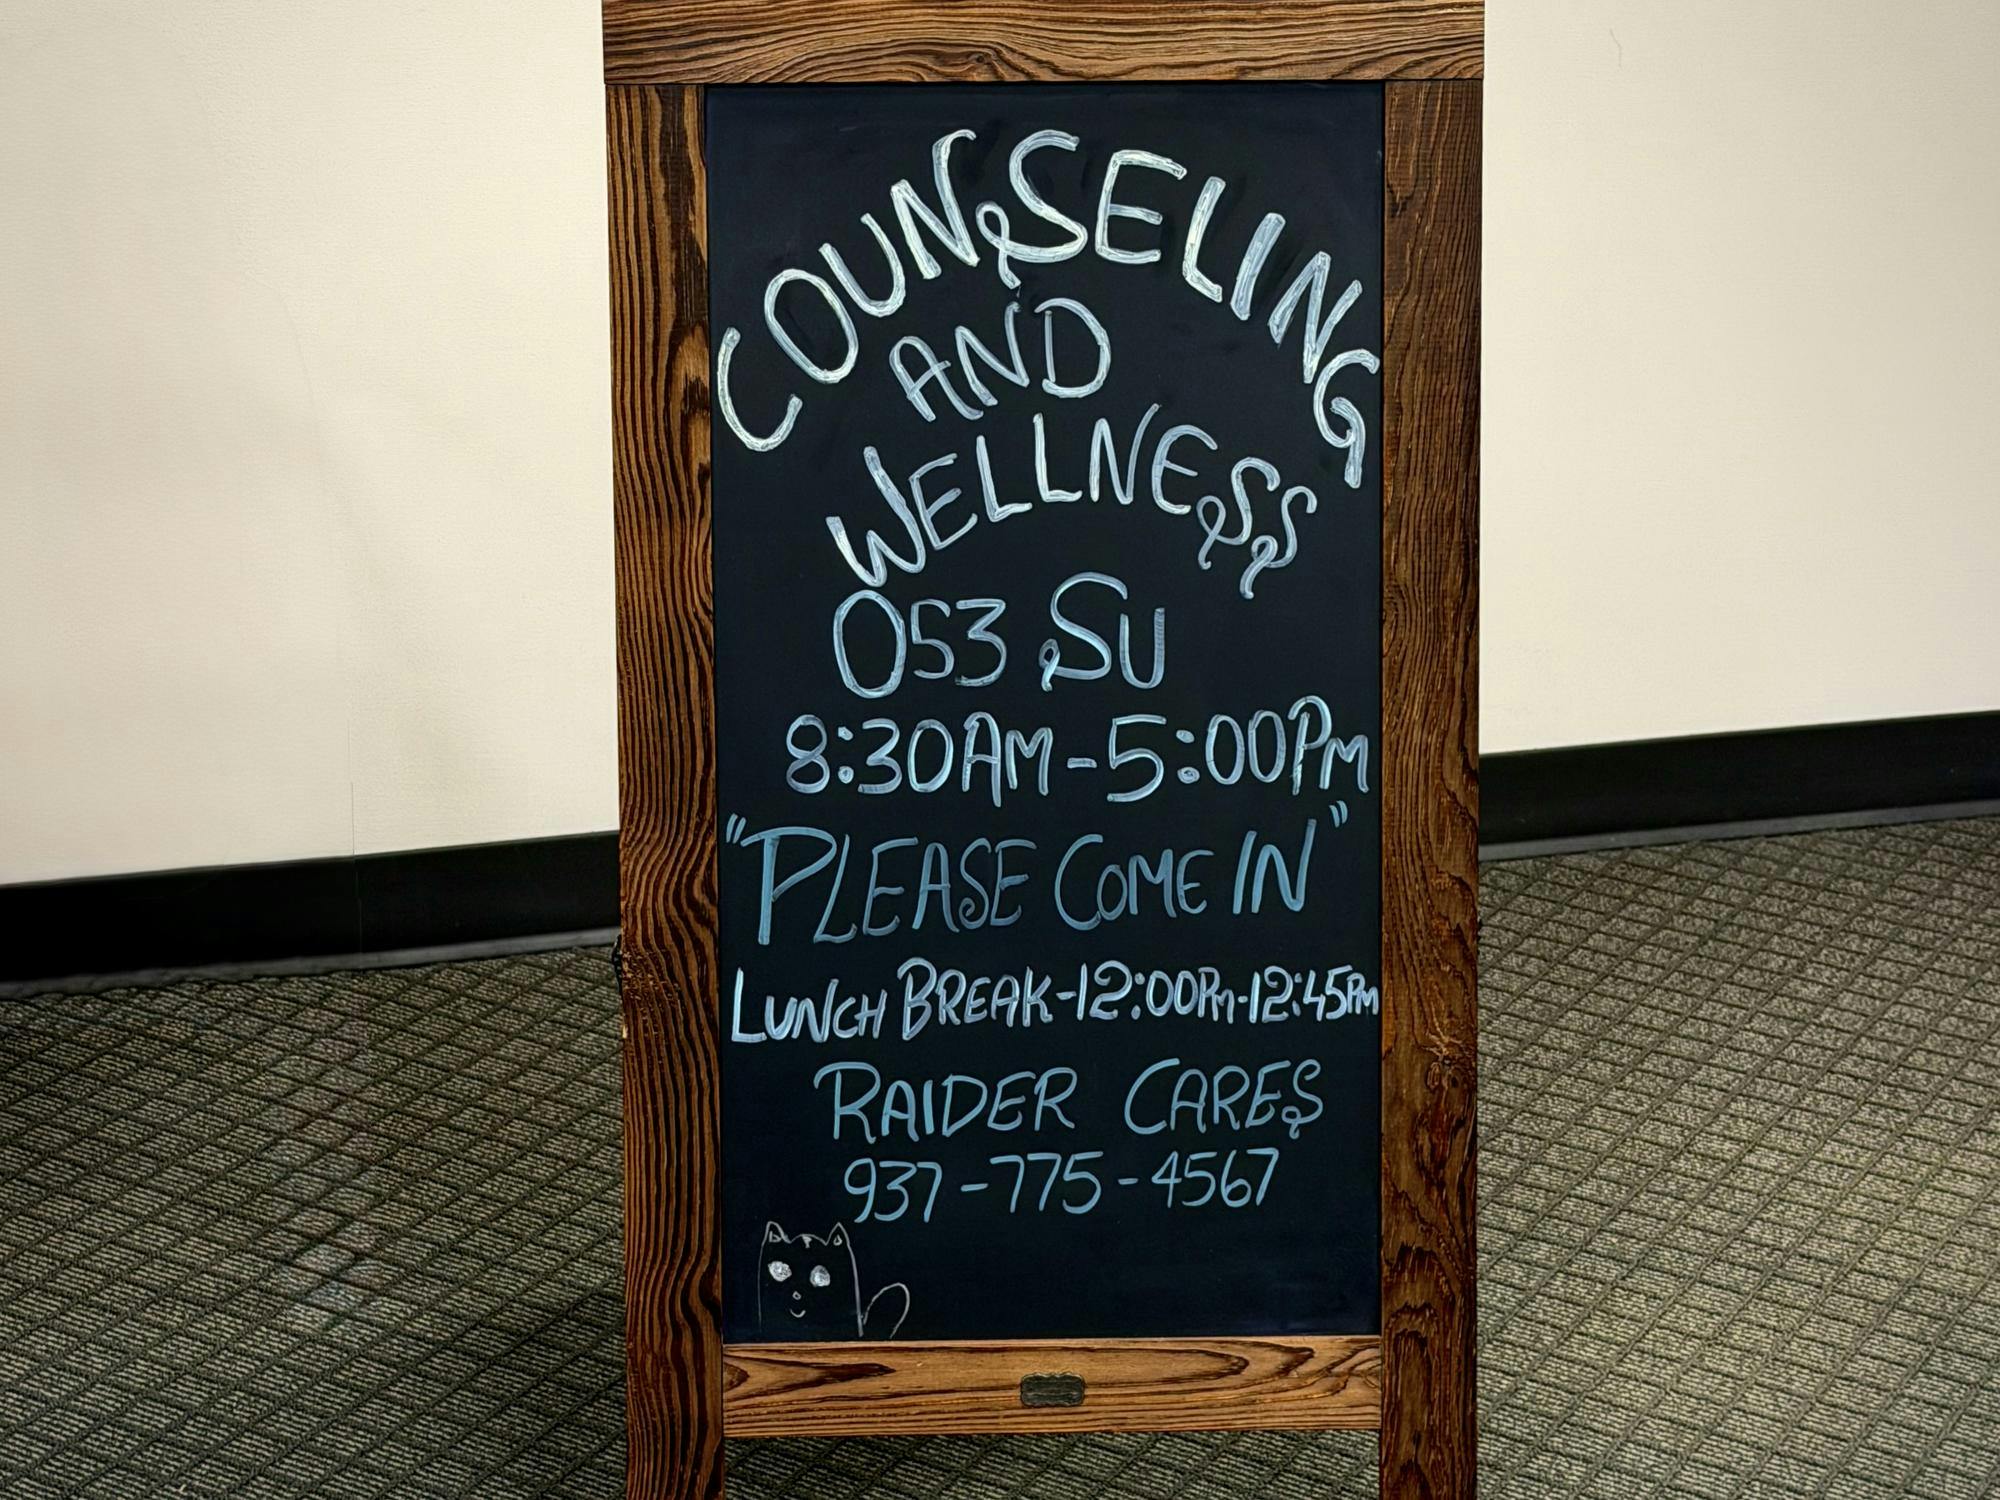 COUNSELING
AND
WELLNESS
053 SU
8:30AM-5:00PM
"PLEASE COME IN"
LUNCH BREAK-12:00PM-12:45PM
RAIDER CARES
937-775-4567